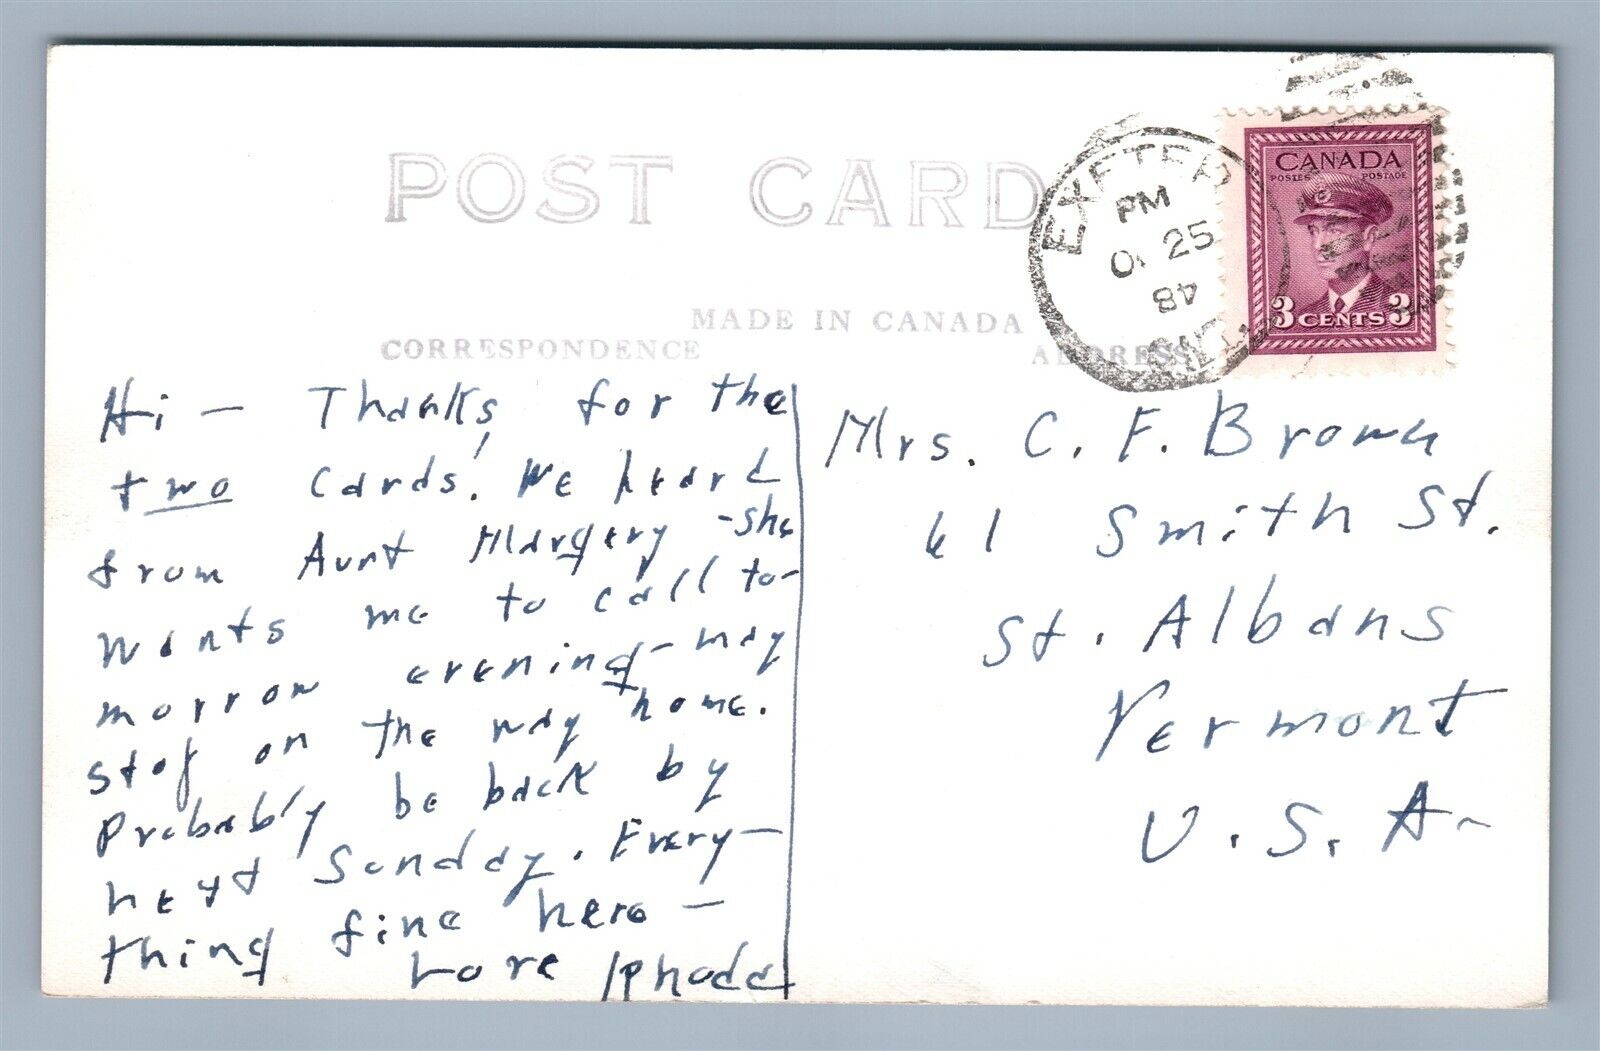 POST CARD
MADE IN CANADA
CORRESPONDENCE
ADDRESS
EXETER
PM
25
48
ONT.
CANADA
POSTES POSTAGE
3 CENTS 3
Hi – Thanks for the
two cards! We heard
from Aunt Margery – she
wants me to call to-
morrow evening – may
stop on the way home.
Probably be back by
next Sunday. Every-
thing fine here –
Love Rhoda
Mrs. C. F. Brown
61 Smith St.
St. Albans
Vermont
U. S. A.